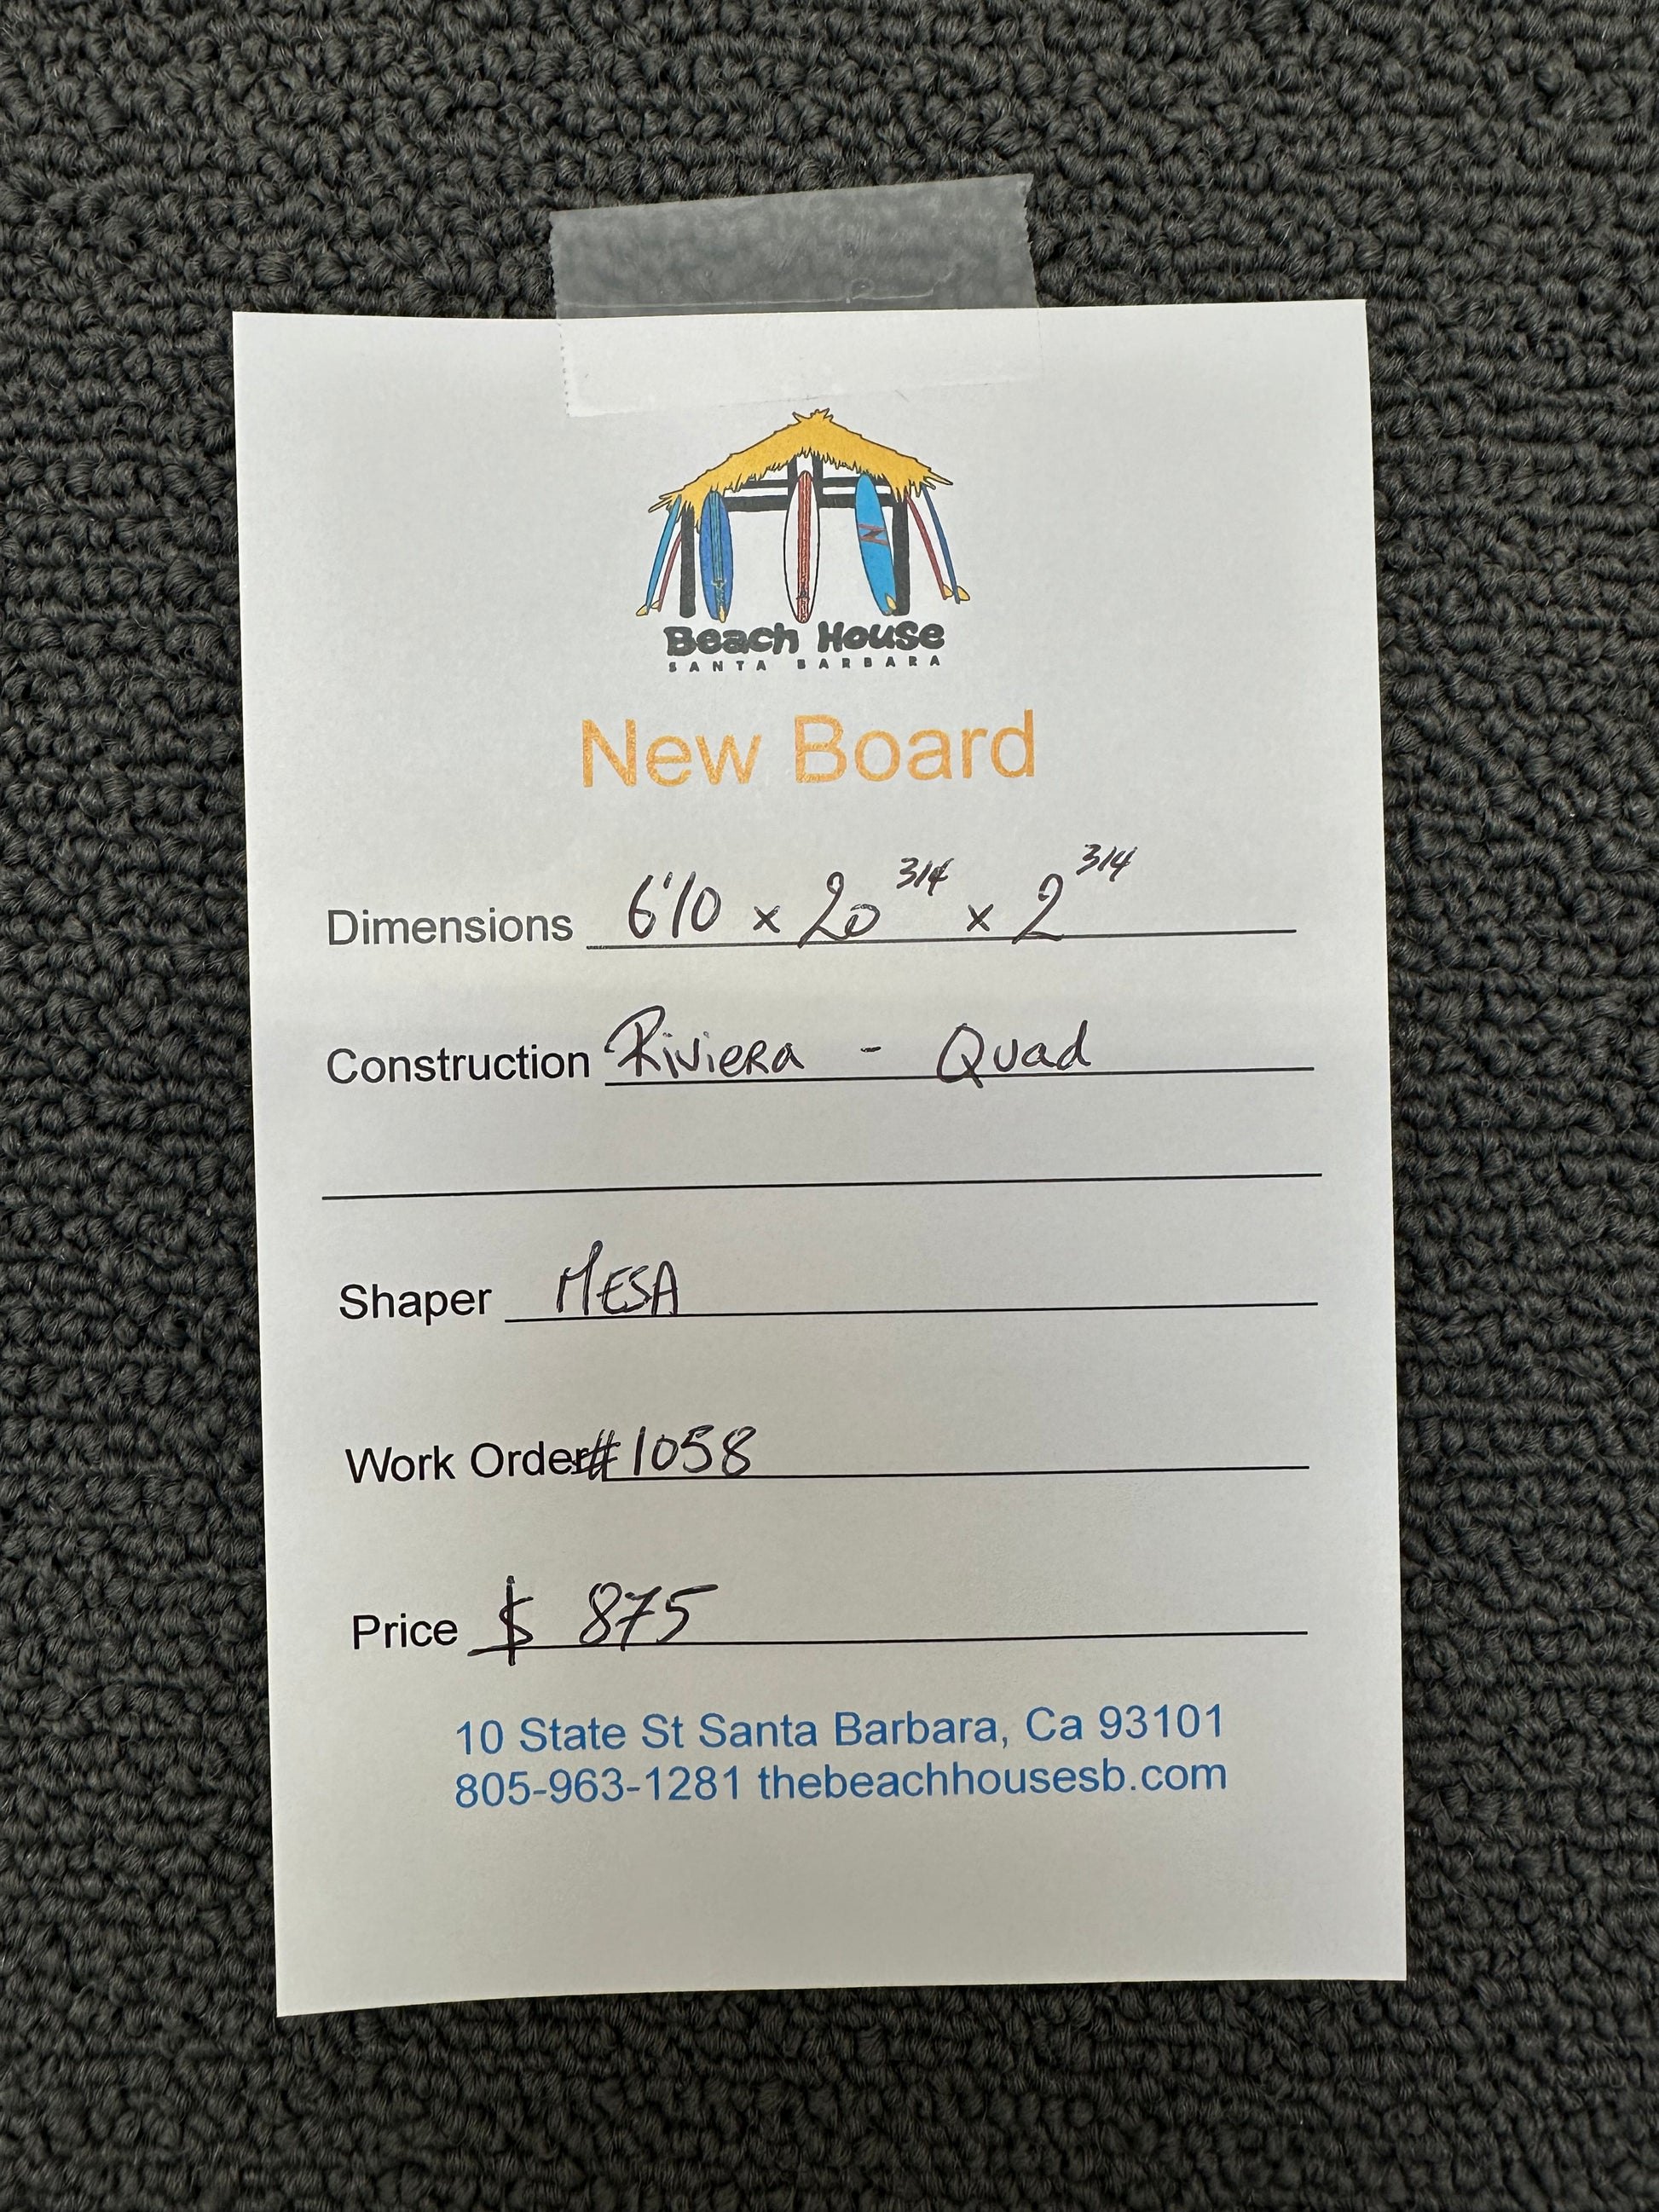 Beach House
SANTA BARBARA
New Board
Dimensions 6'10 x 20 3/4 x 2 3/4
Construction Riviera - Quad
Shaper MESA
Work Order# 1058
Price $ 875
10 State St Santa Barbara, Ca 93101
805-963-1281 thebeachhousesb.com